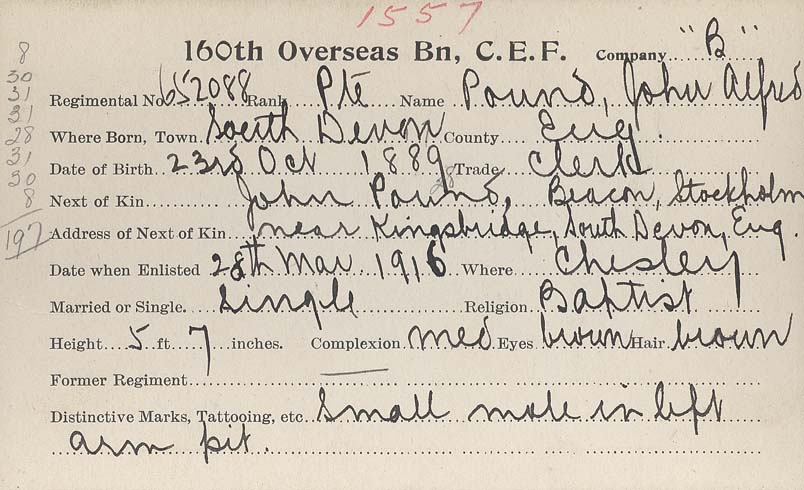 1557
160th Overseas Bn, C.E.F. Company "B"
Regimental No 652088 Rank Pte Name Pound, John Alfred
Where Born, Town South Devon County Eng.
Date of Birth 23rd Oct 1889 Trade Clerk
Next of Kin John Pound, Beacon, Stockholm
Address of Next of Kin near Kingsbridge, South Devon, Eng.
Date when Enlisted 28th Mar 1916 Where Chesley
Married or Single. Single Religion Baptist
Height 5 ft 7 inches. Complexion med. Eyes brown Hair brown
Former Regiment
Distinctive Marks, Tattooing, etc Small mole in left
arm pit.
8
30
31
31
28
31
30
8
197
28